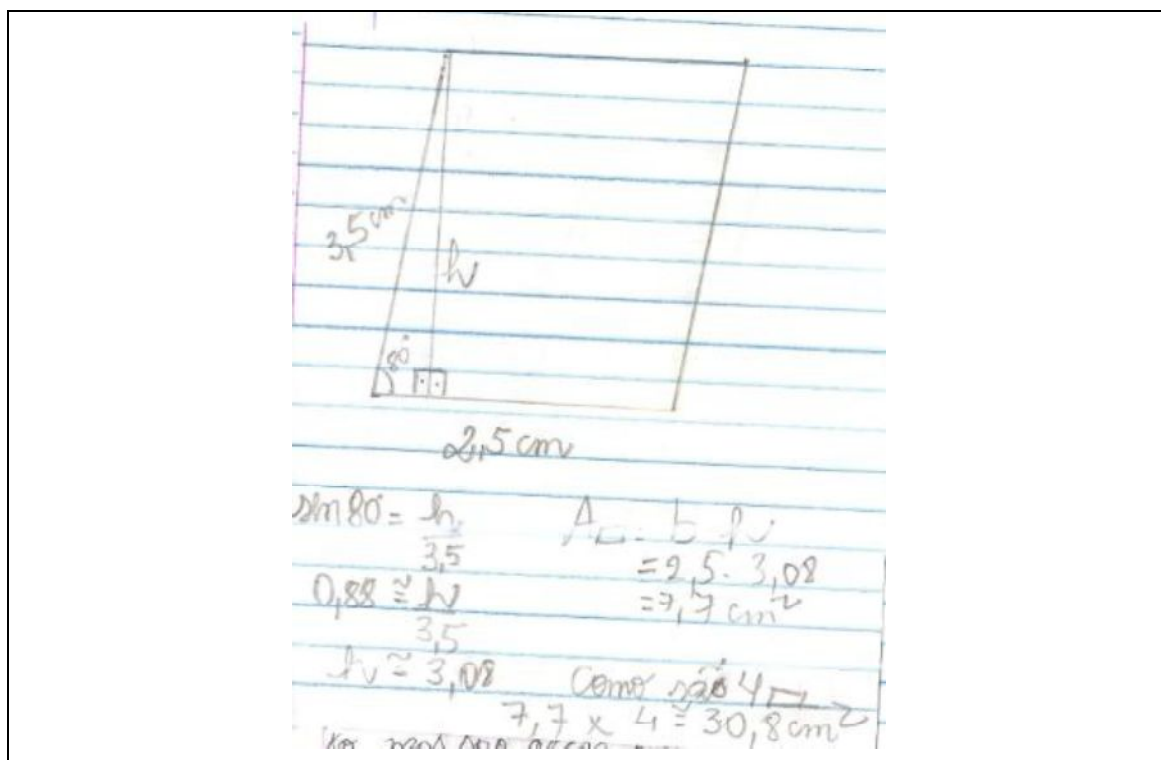 3,5 cm
h
80°
2,5 cm
sin 80° = h/3,5
0,88 ≅ h/3,5
h ≅ 3,08
A▱ = b h
= 2,5 . 3,08
= 7,7 cm²
Como são 4 ▱
7,7 x 4 ≅ 30,8 cm²